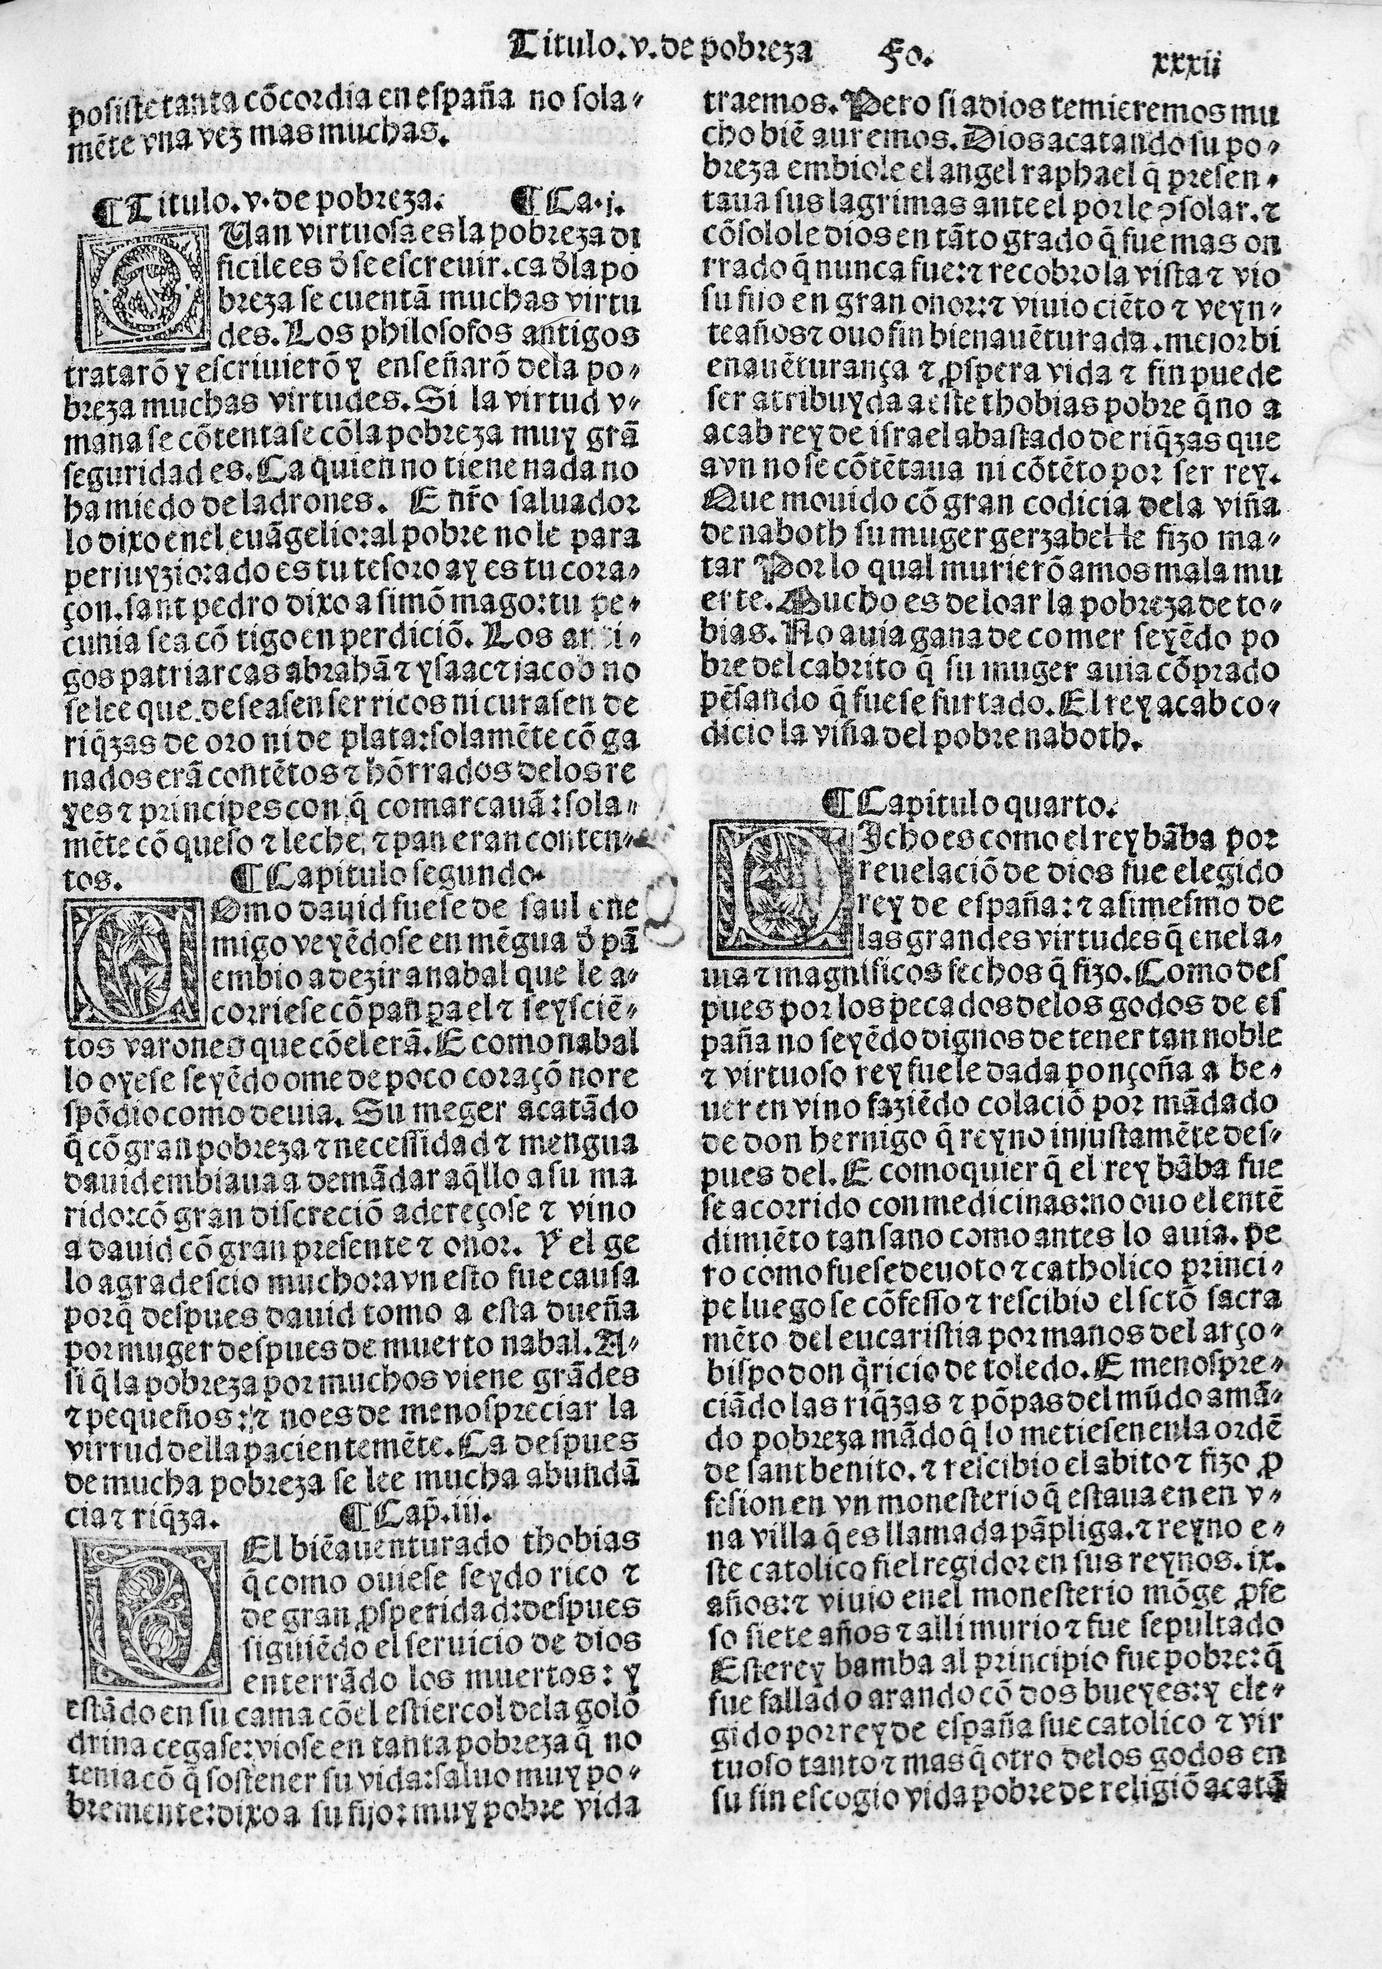 Titulo.v.de pobreza Fo. xxxii
posiste tanta cõcordia en españa no sola-
mẽte vna vez mas muchas.
¶Titulo.v.de pobreza. ¶Ca.j.
QUan virtuosa es la pobreza di
ficile es d̃ se escreuir.ca d̃la po
breza se cuentã muchas virtu
des.Los philosofos antigos
tratarõ y escriuierõ y enseñarõ dela po-
breza muchas virtudes.Si la virtud v-
mana se cõtentase cõla pobreza muy grã
seguridad es.Ca quien no tiene nada no
ha miedo de ladrones. E nr̃o saluador
lo dixo enel euãgelio:al pobre no le para
perjuyzio:ado es tu tesoro ay es tu cora-
çon.sant pedro dixo a simõ mago:tu pe-
cunia sea cõ tigo en perdiciõ. Los anti-
gos patriarcas abrahã ⁊ ysaac ⁊ jacob no
se lee que deseasen ser ricos ni curasen de
riq̃zas de oro ni de plata:solamẽte cõ ga
nados erã contẽtos ⁊ hõrrados delos re
yes ⁊ principes con q̃ comarcauã:sola-
mẽte cõ queso ⁊ leche, ⁊ pan eran conten-
tos. ¶Capitulo segundo.
COmo dauid fuese de saul ene
migo veyẽdose en mẽgua d̃ pã
embio a dezir a nabal que le a-
corriese cõ pan ꝑa el ⁊ seysciẽ-
tos varones que cõel erã.E como nabal
lo oyese seyẽdo ome de poco coraçõ no re
spõdio como deuia. Su meger acatãdo
q̃ cõ gran pobreza ⁊ necessidad ⁊ mengua
dauid embiaua a demãdar aq̃llo a su ma
rido:cõ gran discreciõ adereçose ⁊ vino
a dauid cõ gran presente ⁊ onor. Y el ge
lo agradescio mucho:avn esto fue causa
porq̃ despues dauid tomo a esta dueña
por muger despues de muerto nabal.A-
si q̃ la pobreza por muchos viene grãdes
⁊ pequeños:⁊ no es de menospreciar la
virrud della pacientemẽte.Ca despues
de mucha pobreza se lee mucha abundã
cia ⁊ riq̃za. ¶Cap̃.iii.
DEl biẽauenturado thobias
q̃ como ouiese seydo rico ⁊
de gran ꝓsperidad:despues
siguiẽdo el seruicio de dios
enterrãdo los muertos: y
estãdo en su cama cõel estiercol dela golõ
drina cegase:viose en tanta pobreza q̃ no
tenia cõ q̃ sostener su vida:saluo muy po-
bremente:dixo a su fijo:muy pobre vida
traemos.Pero si a dios temieremos mu
cho biẽ auremos.Dios acatando su po-
breza embiole el angel raphael q̃ presen-
taua sus lagrimas ante el por le ↄsolar.⁊
cõsolole dios en tãto grado q̃ fue mas on
rrado q̃ nunca fue:⁊ recobro la vista ⁊ vio
su fijo en gran onor:⁊ viuio ciẽto ⁊ veyn-
te años ⁊ ouo fin bienauẽturada.mejor bi
enauẽturança ⁊ ꝓspera vida ⁊ fin puede
ser atribuyda a este thobias pobre q̃ no a
acab rey de israel abastado de riq̃zas que
avn no se cõtẽtaua ni cõtẽto por ser rey.
Que mouido cõ gran codicia dela viña
de naboth su muger gerzabel le fizo ma-
tar Por lo qual murierõ amos mala mu
erte.Mucho es de loar la pobreza de to-
bias.No auia gana de comer seyẽdo po
bre del cabrito q̃ su muger auia cõprado
pẽsando q̃ fuese furtado.El rey acab co-
dicio la viña del pobre naboth.
¶Capitulo quarto.
DIcho es como el rey bãba por
reuelaciõ de dios fue elegido
rey de españa:⁊ asimesmo de
las grandes virtudes q̃ enel a-
uia ⁊ magnificos fechos q̃ fizo.Como des
pues por los pecados delos godos de es
paña no seyẽdo dignos de tener tan noble
⁊ virtuoso rey fuele dada ponçoña a be-
uer en vino faziẽdo colaciõ por mãdado
de don hernigo q̃ reyno injustamẽte des-
pues del.E como quier q̃ el rey bãba fue
se acorrido con medicinas:no ouo el entẽ
dimiẽto tan sano como antes lo auia.pe
ro como fuese deuoto ⁊ catholico princi-
pe luego se cõfesso ⁊ rescibio el sctõ sacra
mẽto del eucaristia por manos del arço-
bispo don q̃ricio de toledo.E menospre-
ciãdo las riq̃zas ⁊ põpas del mũdo amã-
do pobreza mãdo q̃ lo metiesen enla ordẽ
de sant benito.⁊ rescibio el abito ⁊ fizo ꝓ
fesion en vn monesterio q̃ estaua en en v-
na villa q̃ es llamada pãpliga.⁊ reyno e-
ste catolico fiel regidor en sus reynos.ix.
años:⁊ viuio enel monesterio mõge ꝓfe
so siete años ⁊ alli murio ⁊ fue sepultado
Este rey bamba al principio fue pobre:q̃
fue fallado arando cõ dos bueyes:y ele-
gido por rey de españa fue catolico ⁊ vir
tuoso tanto ⁊ mas q̃ otro delos godos en
su fin escogio vida pobre de religiõ acatã